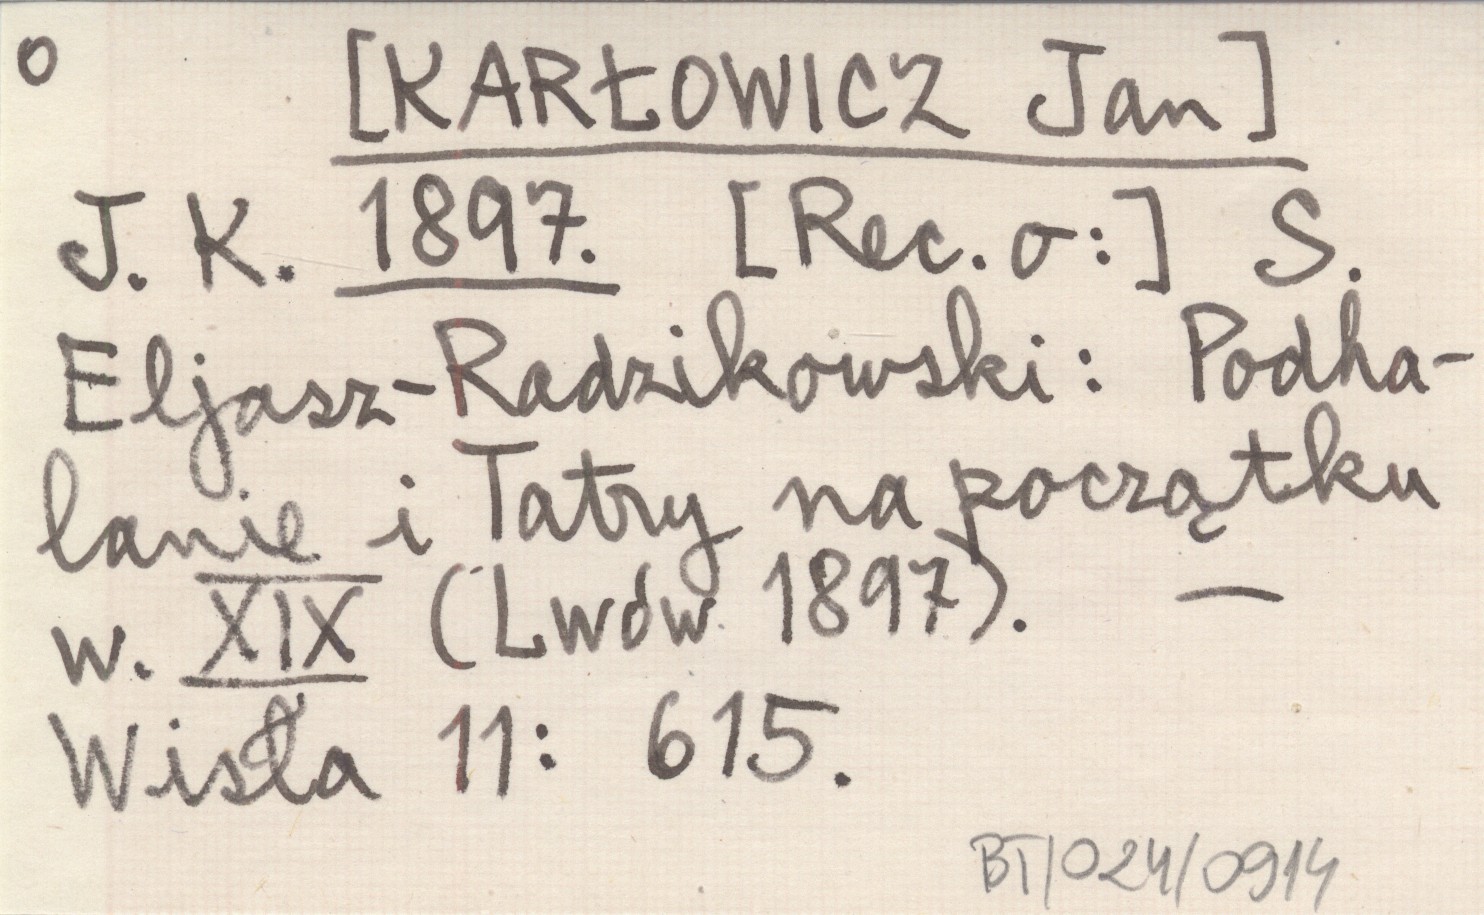 o
[KARŁOWICZ Jan]
J. K. 1897. [Rec. o:] S.
Eljasz-Radzikowski: Podha-
lanie i Tatry na początku
w. XIX (Lwów 1897). —
Wisła 11: 615.
BT/024/0914